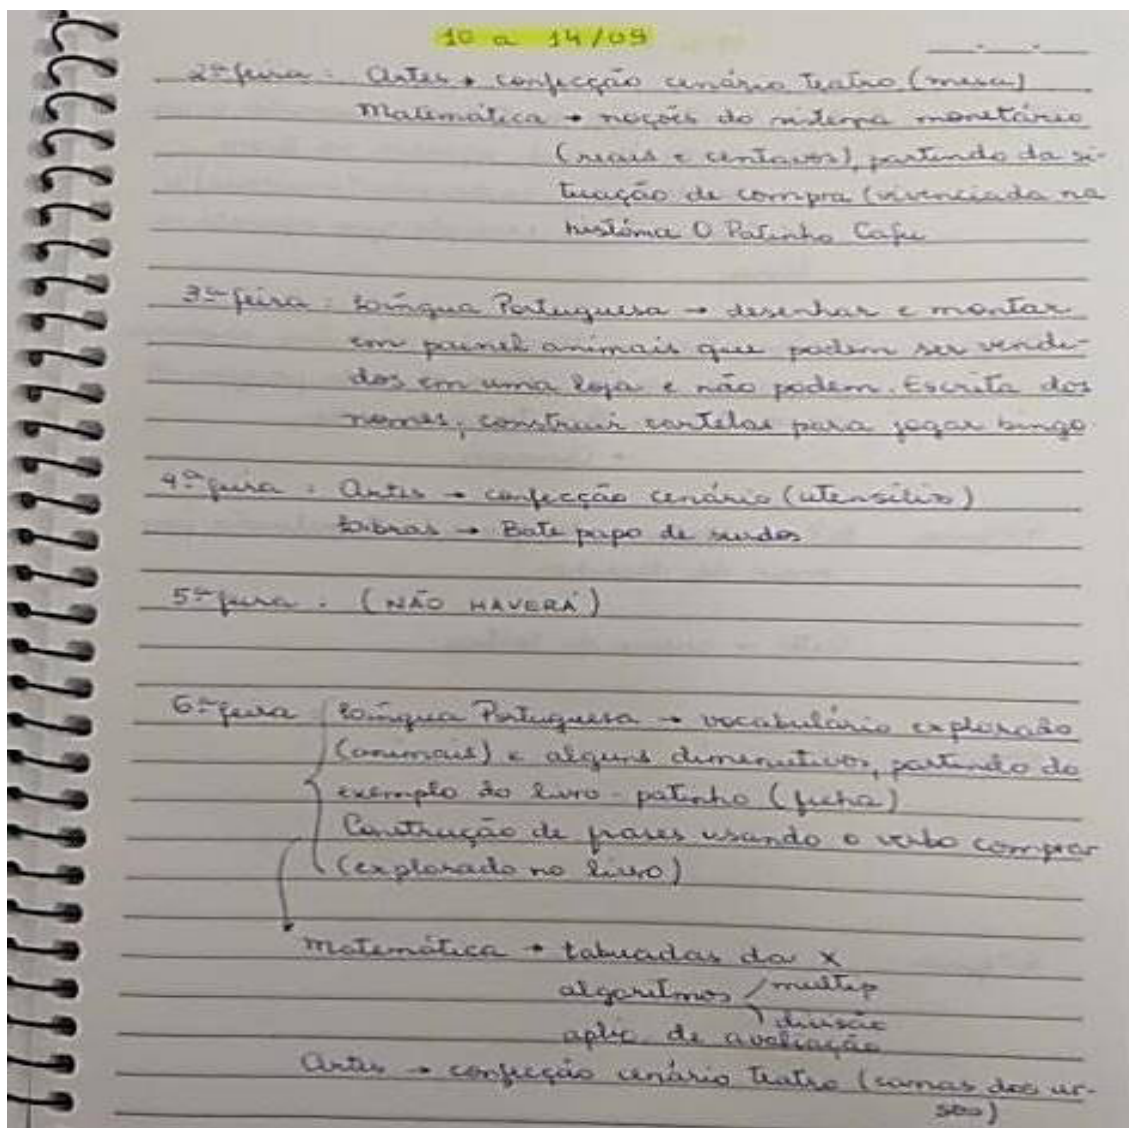 10 a 14/09
2ª feira: Artes → confecção cenário teatro (mesa)
Matemática → noções do sistema monetário
(reais e centavos), partindo da si-
tuação de compra (vivenciada na
história O Patinho Cafu
3ª feira: Língua Portuguesa → desenhar e montar
em painel animais que podem ser vendi-
dos em uma loja e não podem. Escrita dos
nomes, construir cartelas para jogar bingo
4ª feira: Artes → confecção cenário (utensílios)
Libras → Bate papo de surdos
5ª feira: (NÃO HAVERÁ)
6ª feira Língua Portuguesa → vocabulário explorado
(animais) e alguns diminutivos, partindo do
exemplo do livro - patinho (ficha)
Construção de frases usando o verbo comprar
(explorado no livro)
Matemática → tabuadas da x
algoritmos multip
divisão
aplic. de avaliação
Artes → confecção cenário teatro (camas dos ur-
sos)